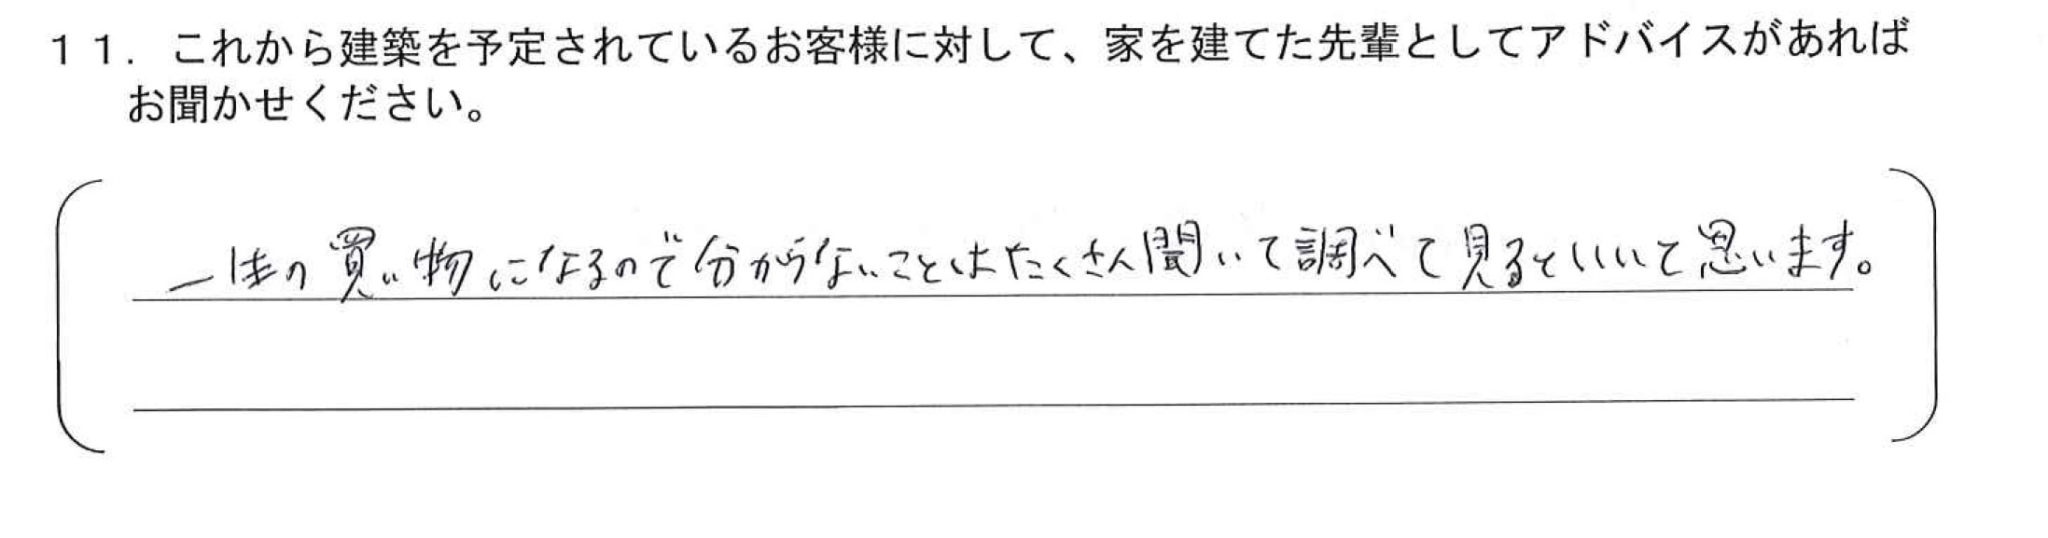 11．これから建築を予定されているお客様に対して、家を建てた先輩としてアドバイスがあれば
お聞かせください。
一生の買い物になるので分からないことはたくさん聞いて調べて見るといいと思います。